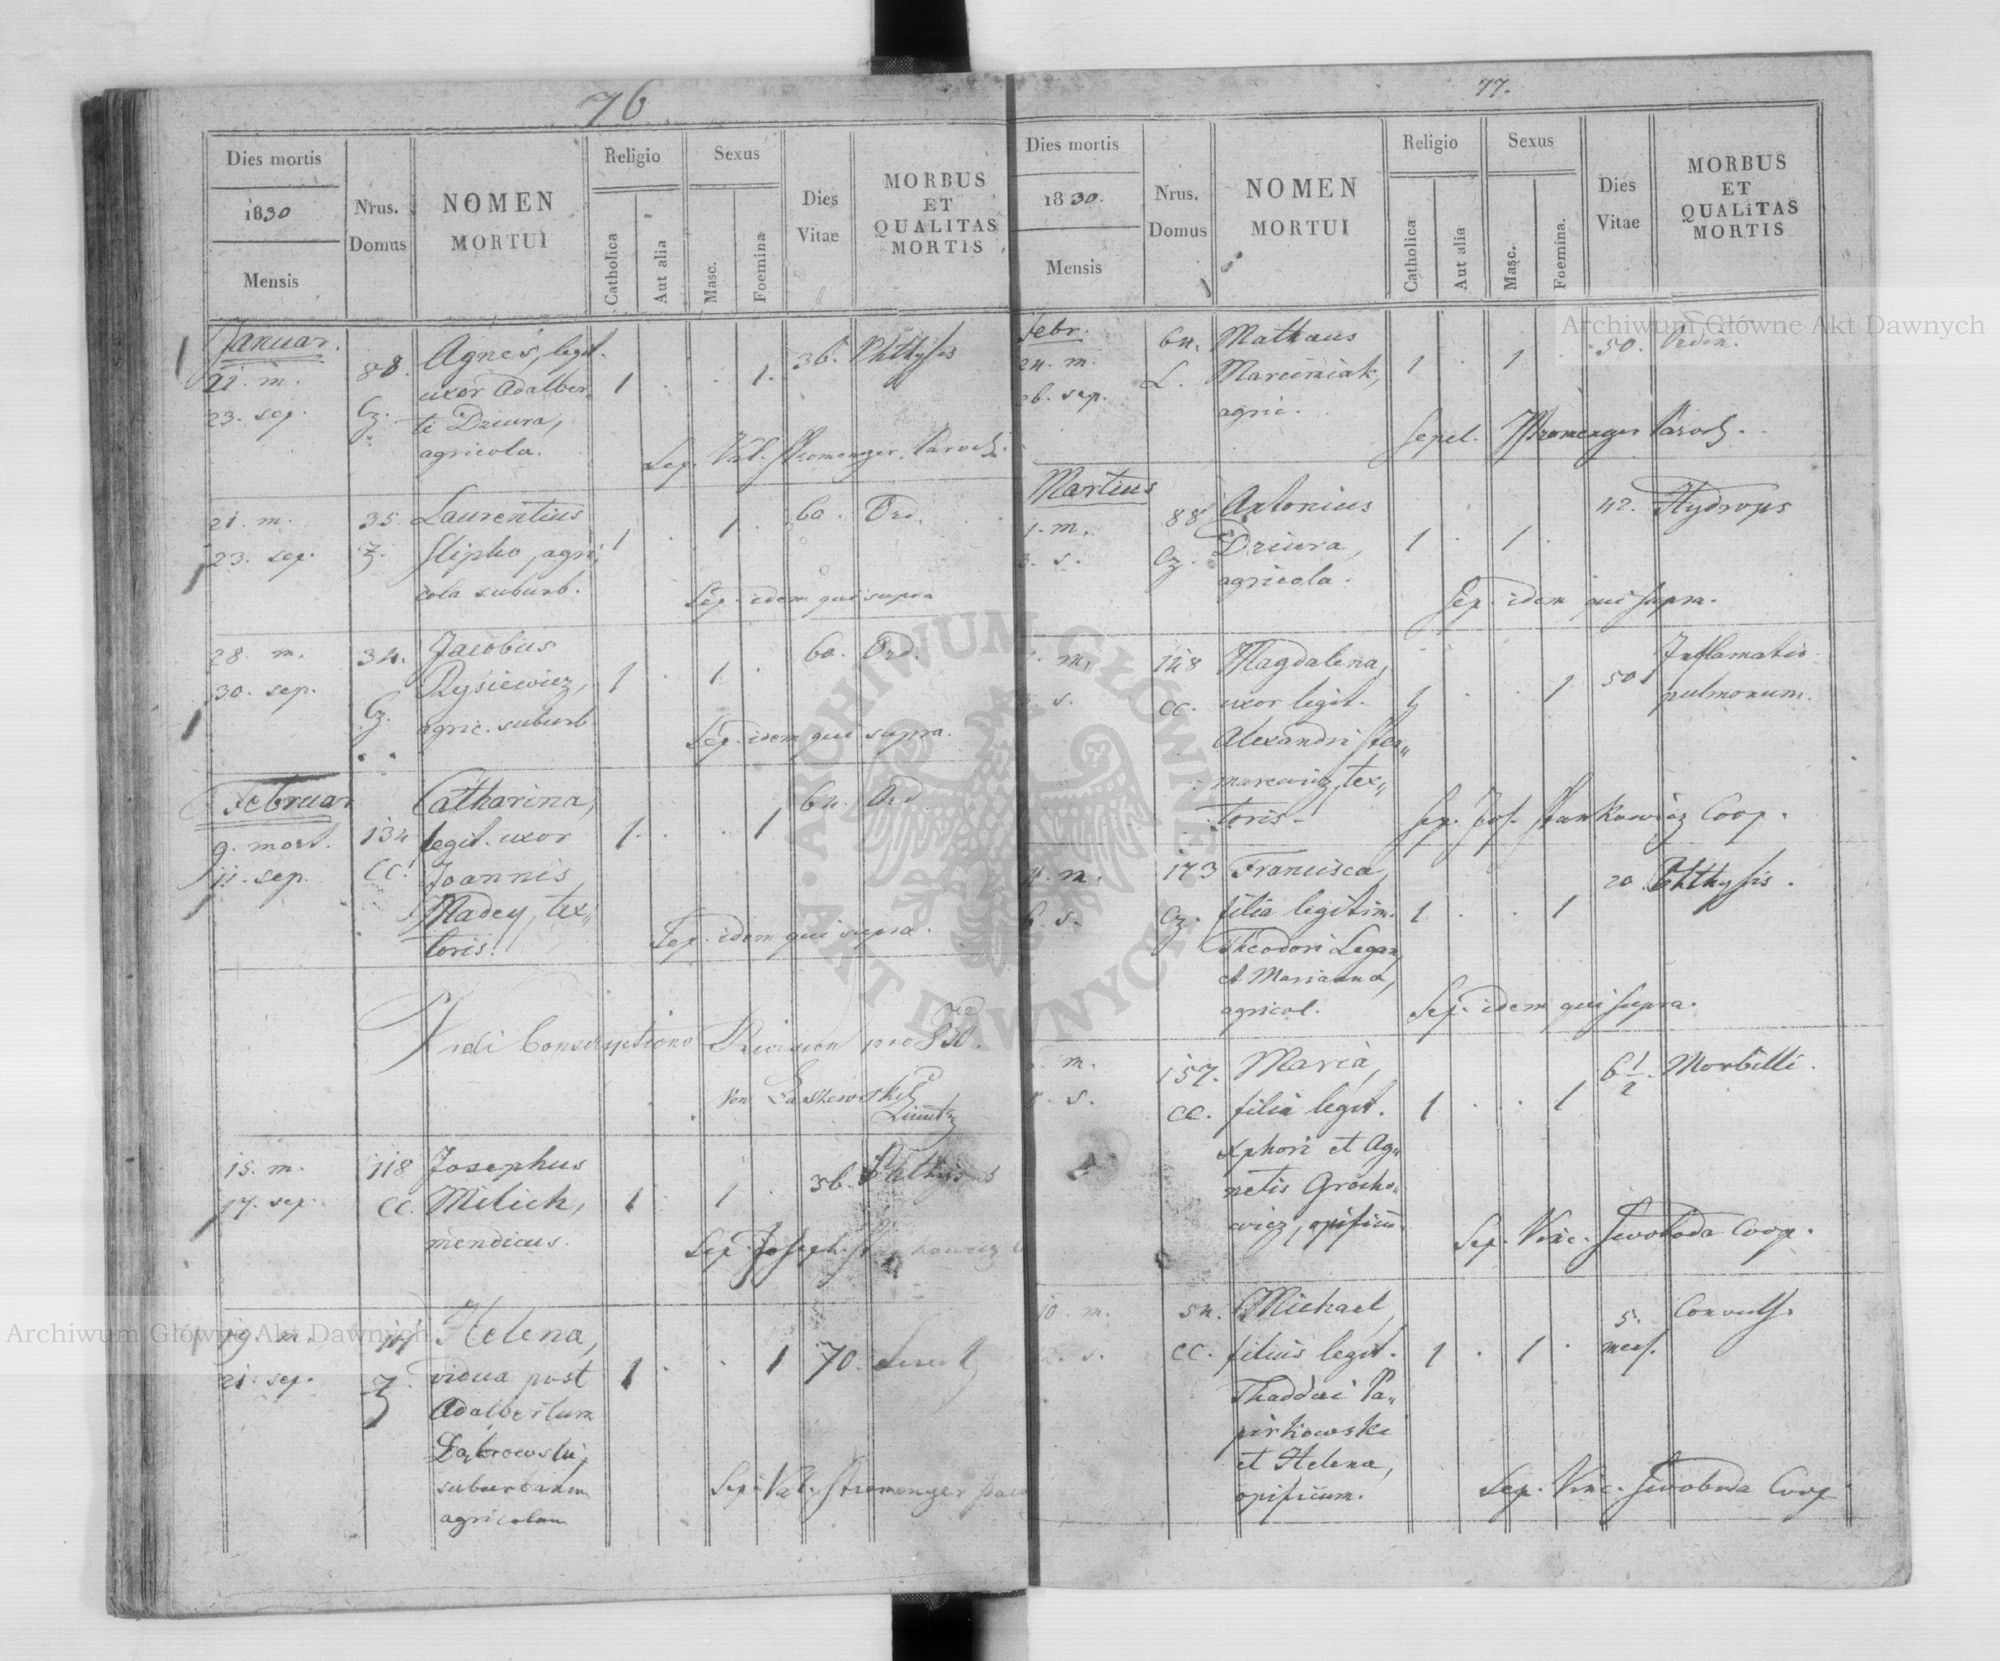 76
Dies mortis
1830
Mensis
Nrus.
Domus
NOMEN
MORTUI
Religio
Catholica
Aut alia
Sexus
Masc.
Foemina
Dies
Vitae
MORBUS
ET
QUALITAS
MORTIS
Januar.
21. m.
23. sep.
88.
Cz.
Agnes, legit.
uxor Adalber,,
ti Dziura,
agricola.
1 . . 1.
36. Phthysis
Sep. Val. Stromenger, Paroch.
21. m.
23. sep.
35.
Z.
Laurentius
Slipko, agri,,
cola suburb.
1 . 1 .
60. Ord.
Sep. idem qui supra
28. m.
30. sep.
34.
Cz.
Jacobus
Rysiewicz,
agric. suburb.
1 . 1 .
60. Ord.
Sep. idem qui supra.
Februar
9. mort.
11. sep.
134
CC.
Catharina,
legit. uxor
Joannis
Madey, tex,,
toris.
1 . . 1
64. Ord
Sep. idem qui supra.
Vidi Conscriptions Revision pro 830.
von
15. m.
17. sep.
118
CC.
Josephus
Milich,
mendicus.
1 . 1 .
36. Phthysis
Sep. Joseph.
19. m.
21. sep.
Z.
Helena,
vidua post
Adalbertum
Dąbrowski,
suburbanum
agricolam
1 . . 1
70.
Sep. Val. Stromenger
77.
Dies mortis
1830.
Mensis
Nrus.
Domus
NOMEN
MORTUI
Religio
Catholica
Aut alia
Sexus
Masc.
Foemina.
Dies
Vitae
MORBUS
ET
QUALITAS
MORTIS
Febr.
24. m.
26. sep.
64.
L.
Mathaus
Marciniak,
agric.
1 . 1 .
50. Orden.
Sepel. Stromenger Paroch.
Martius
1. m.
3. s.
88
Cz.
Antonius
Dziura,
agricola.
1 . 1 .
42. Hydrops
Sep. idem qui supra.
m.
s.
148
CC.
Magdalena,
uxor legit.
Alexandri
toris.
1 . . 1
50
Inflamatio
pulmonum.
Sep. Jos. Stankiewicz Coop.
4. m.
6. s.
173
Cz.
Francisca,
filia legitim.
Theodori
et Marianna,
agricol.
1 . . 1
20. Phthysis.
Sep. idem qui supra.
m.
s.
157.
CC.
Maria,
filia legit.
Xphori et Ag,,
netis Grocho,,
wicz, opificū.
1 . . 1
6 1/2. Morbilli.
Sep. Vinc. Swoboda Coop.
10. m.
s.
54.
CC.
Michael,
filius legit.
Thaddaei Pa,,
pirkowski
et Helena,
opificum.
1 . 1 .
5.
mens.
Convuls.
Sep. Vinc. Swoboda Coop
Archiwum Główne Akt Dawnych
Archiwum Główne Akt Dawnych
ARCHIWUM GŁÓWNE AKT DAWNYCH